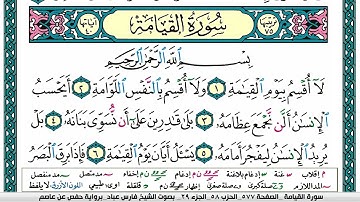 سُورَةُ القِيَامَةِ
بِسْمِ ٱللَّهِ ٱلرَّحْمَٰنِ ٱلرَّحِيمِ
لَآ أُقْسِمُ بِيَوْمِ ٱلْقِيَٰمَةِ ١ وَلَآ أُقْسِمُ بِٱلنَّفْسِ ٱللَّوَّامَةِ ٢ أَيَحْسَبُ
ٱلْإِنسَٰنُ أَلَّن نَّجْمَعَ عِظَامَهُۥ ٣ بَلَىٰ قَٰدِرِينَ عَلَىٰٓ أَن نُّسَوِّىَ بَنَانَهُۥ ٤ بَلْ
يُرِيدُ ٱلْإِنسَٰنُ لِيَفْجُرَ أَمَامَهُۥ ٥ يَسْـَٔلُ أَيَّانَ يَوْمُ ٱلْقِيَٰمَةِ ٦ فَإِذَا بَرِقَ ٱلْبَصَرُ
سورة القيامة الصفحة ٥٧٧ الحزب ٥٨ الجزء ٢٩ بصوت الشيخ فارس عباد برواية حفص عن عاصم